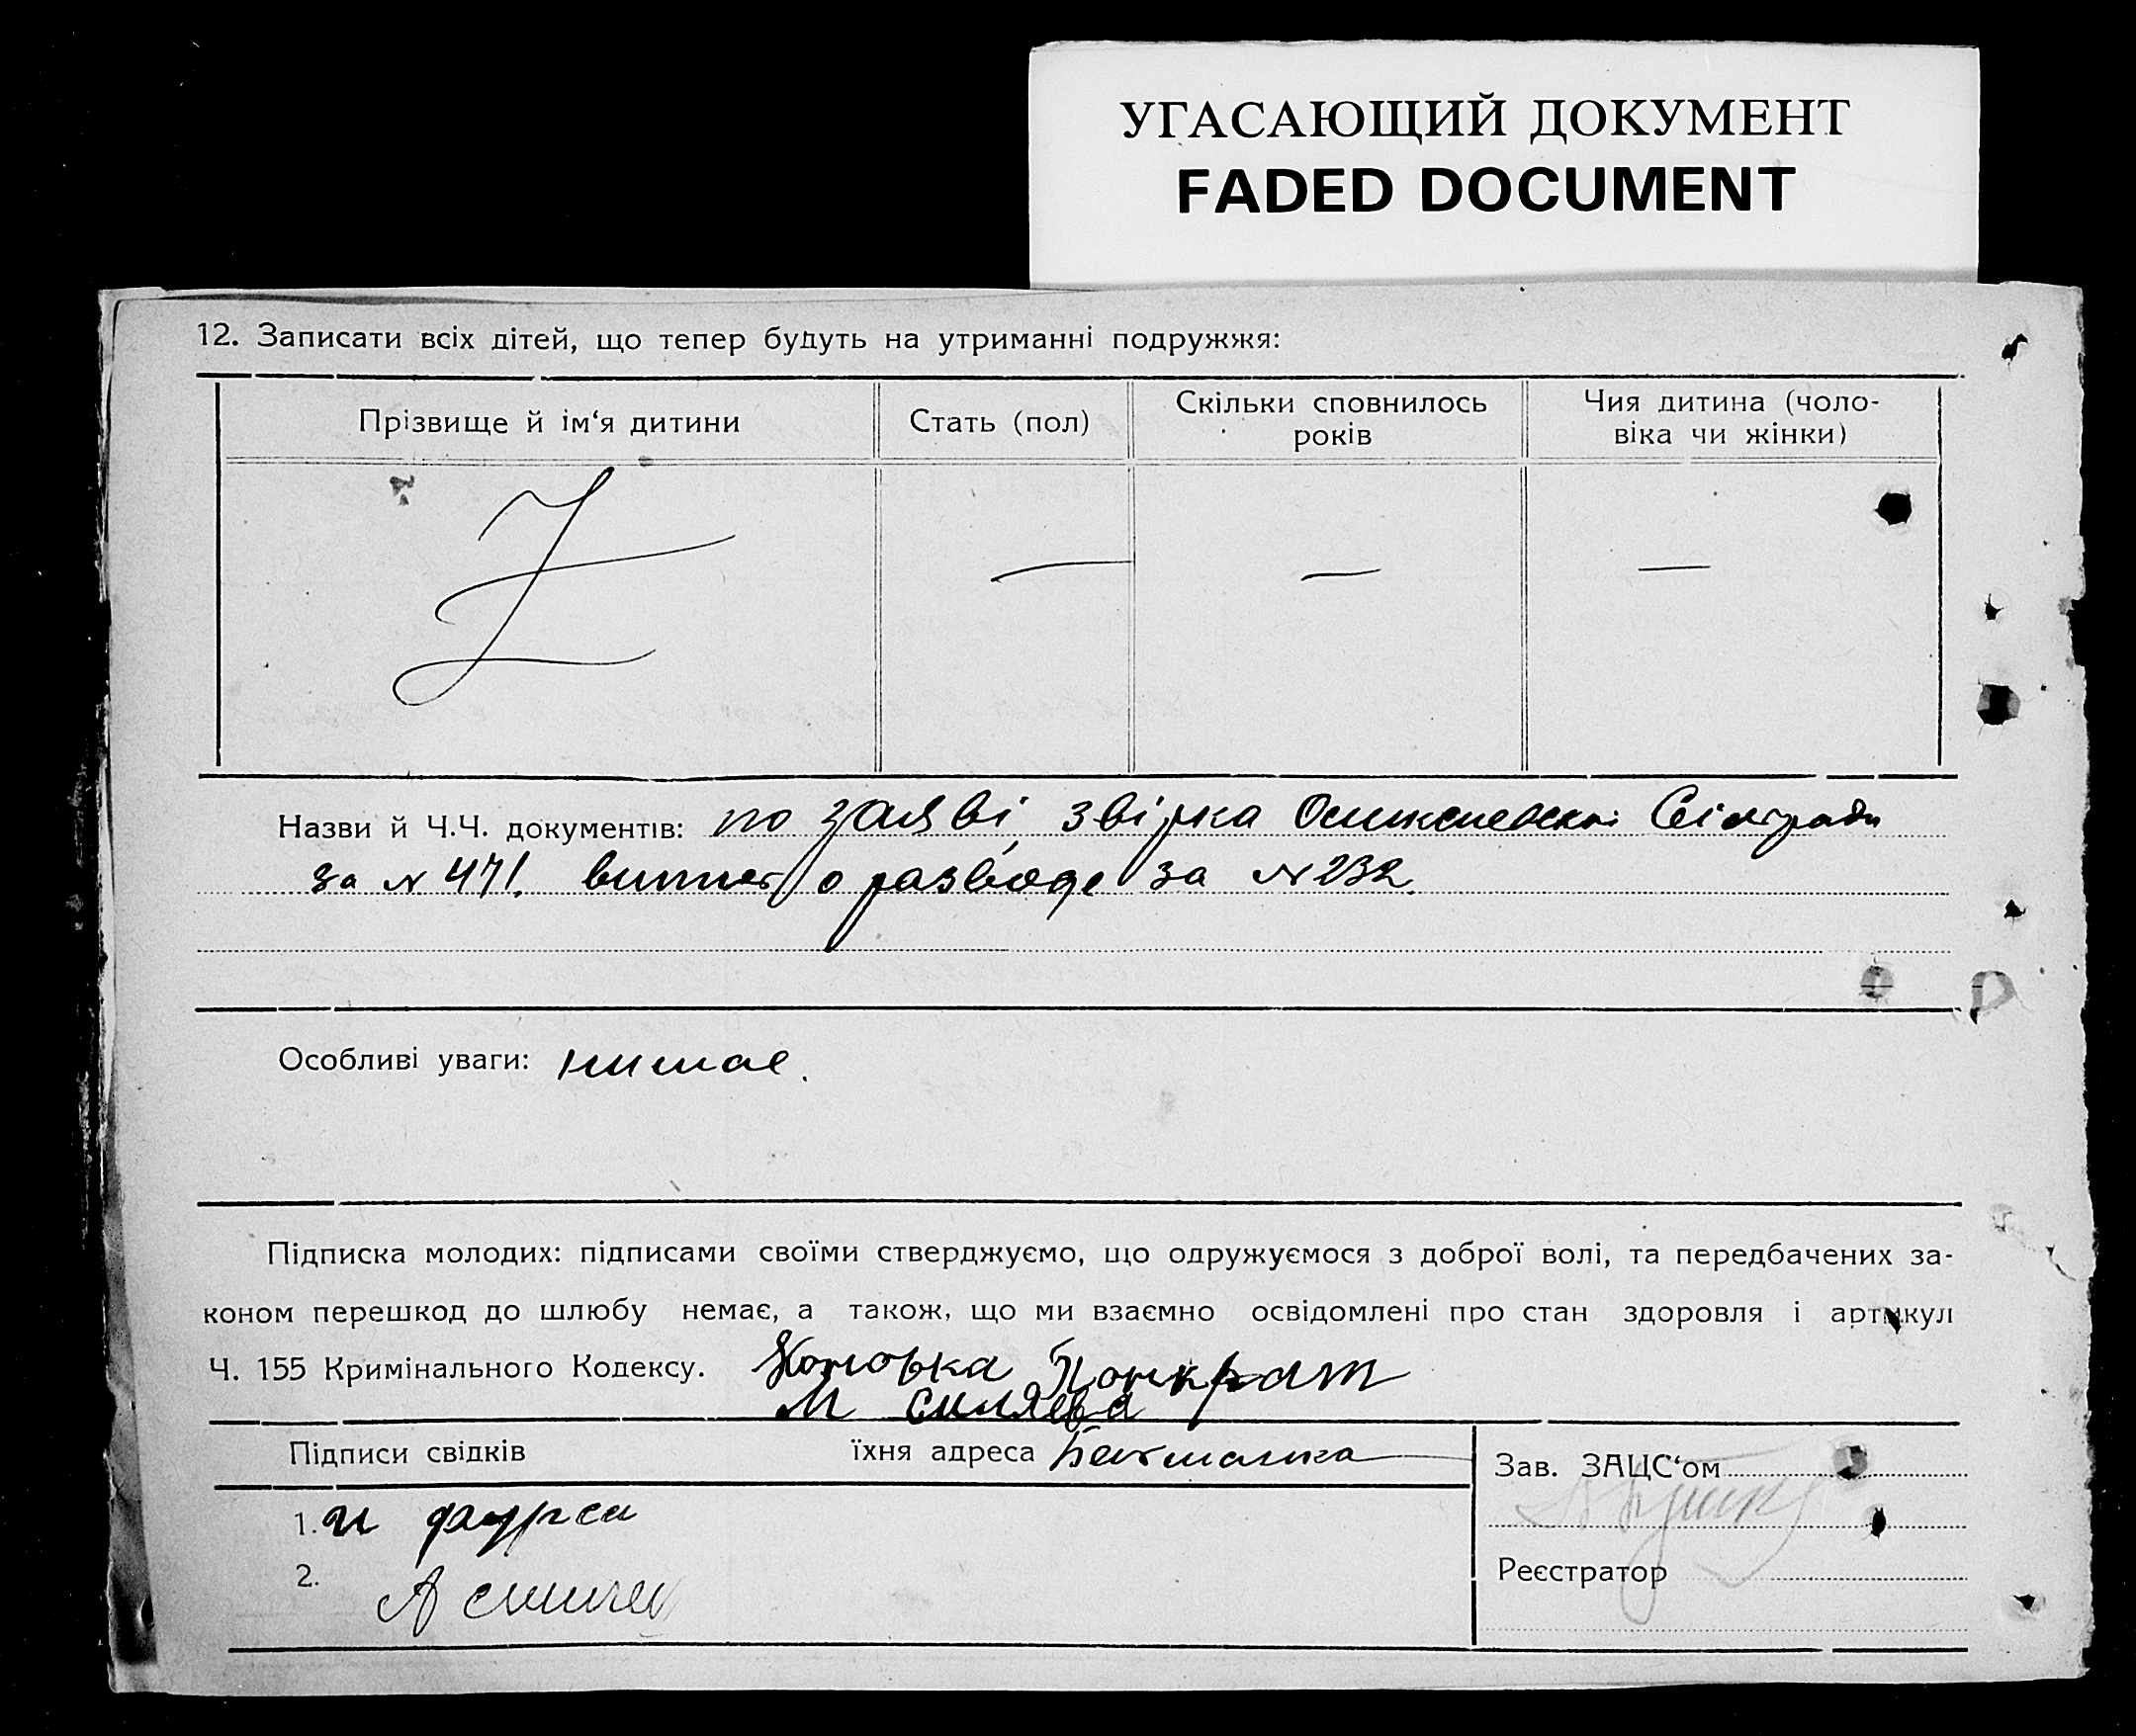 УГАСАЮЩИЙ ДОКУМЕНТ
FADED DOCUMENT
12. Записати всіх дітей, що тепер будуть на утриманні подружжя:
Прізвище й ім‘я дитини
Стать (пол)
Скільки сповнилось
років
Чия дитина (чоло-
віка чи жінки)
Z — — —
Назви й Ч.Ч. документів: по заяві звірка Сільради
за № 471. о разводе за № 232.
Особливі уваги: нимае.
Підписка молодих: підписами своїми стверджуємо, що одружуємося з доброї волі, та передбачених за-
коном перешкод до шлюбу немає, а також, що ми взаємно освідомлені про стан здоровля і артикул
Ч. 155 Кримінального Кодексу. Панкрат
М Силяева
Підписи свідків їхня адреса
Зав. ЗАЦС‘ом
1. и
2. А
Реєстратор